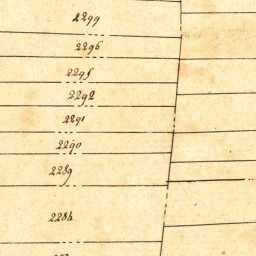 2299
2296
2295
2292
2291
2290
2289
2288